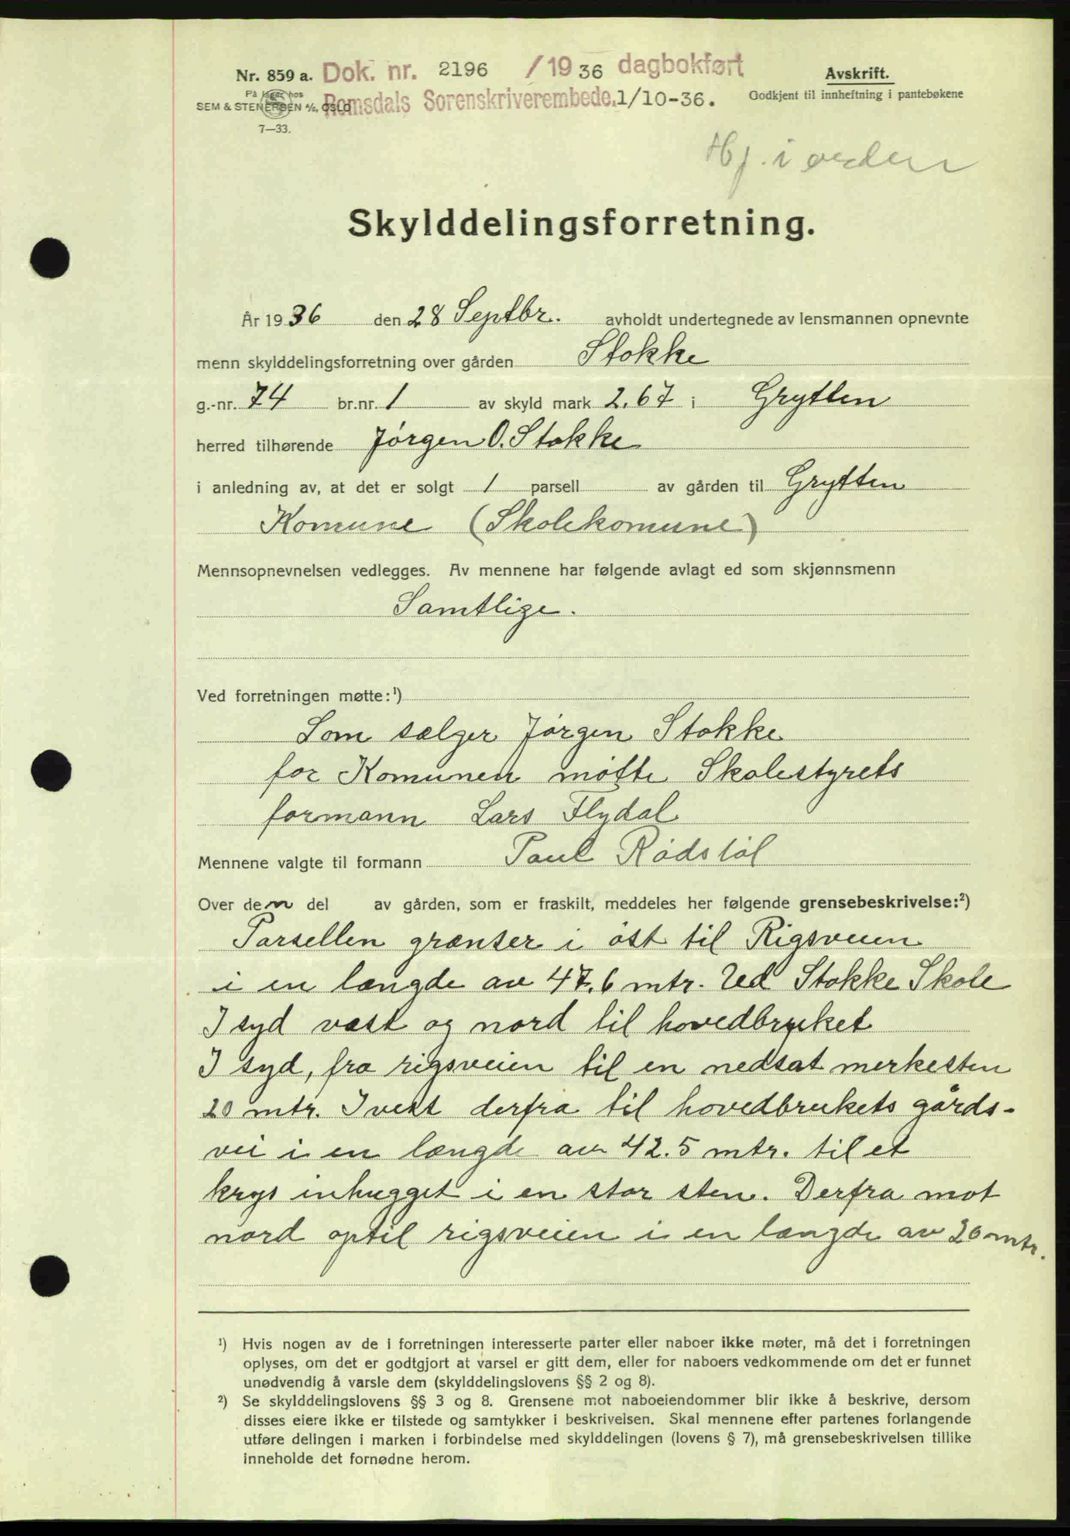 Nr. 859 a. Dok. nr. 2196 /1936 dagbokført
Avskrift.
På lager hos
SEM & STENERSEN A/S, OSLO Romsdals Sorenskriverembede, 1/10-36.
Godkjent til innheftning i pantebøkene
7—33.
Hj. i orden
Skylddelingsforretning.
År 1936 den 28 Septbr. avholdt undertegnede av lensmannen opnevnte
menn skylddelingsforretning over gården Stokke
g.-nr. 74 br.nr. 1 av skyld mark 2,67 i Grytten
herred tilhørende Jørgen O. Stokke
i anledning av, at det er solgt 1 parsell av gården til Grytten
Komune (Skolekomune)
Mennsopnevnelsen vedlegges. Av mennene har følgende avlagt ed som skjønnsmenn
Samtlige.
Ved forretningen møtte:¹)
Som sælger Jørgen Stokke
for Komunen møtte Skolestyrets
formann Lars Flydal
Mennene valgte til formann Paul Rødstøl
Over den del av gården, som er fraskilt, meddeles her følgende grensebeskrivelse:²)
Parsellen grænser i øst til Rigsveien
i en længde av 47.6 mtr. Ved Stokke Skole
I syd vest og nord til hovedbruket
I syd, fra rigsveien til en nedsat merkesten
20 mtr. I vest derfra til hovedbrukets gårds-
vei i en længde av 42.5 mtr. til et
krys inhugget i en stor sten. Derfra mot
nord optil rigsveien i en længde av 20 mtr.
¹) Hvis nogen av de i forretningen interesserte parter eller naboer ikke møter, må det i forretningen
oplyses, om det er godtgjort at varsel er gitt dem, eller for naboers vedkommende om det er funnet
unødvendig å varsle dem (skylddelingslovens §§ 2 og 8).
²) Se skylddelingslovens §§ 3 og 8. Grensene mot naboeiendommer blir ikke å beskrive, dersom
disses eiere ikke er tilstede og samtykker i beskrivelsen. Skal mennene efter partenes forlangende
utføre delingen i marken i forbindelse med skylddelingen (lovens § 7), må grensebeskrivelsen tillike
inneholde det fornødne herom.